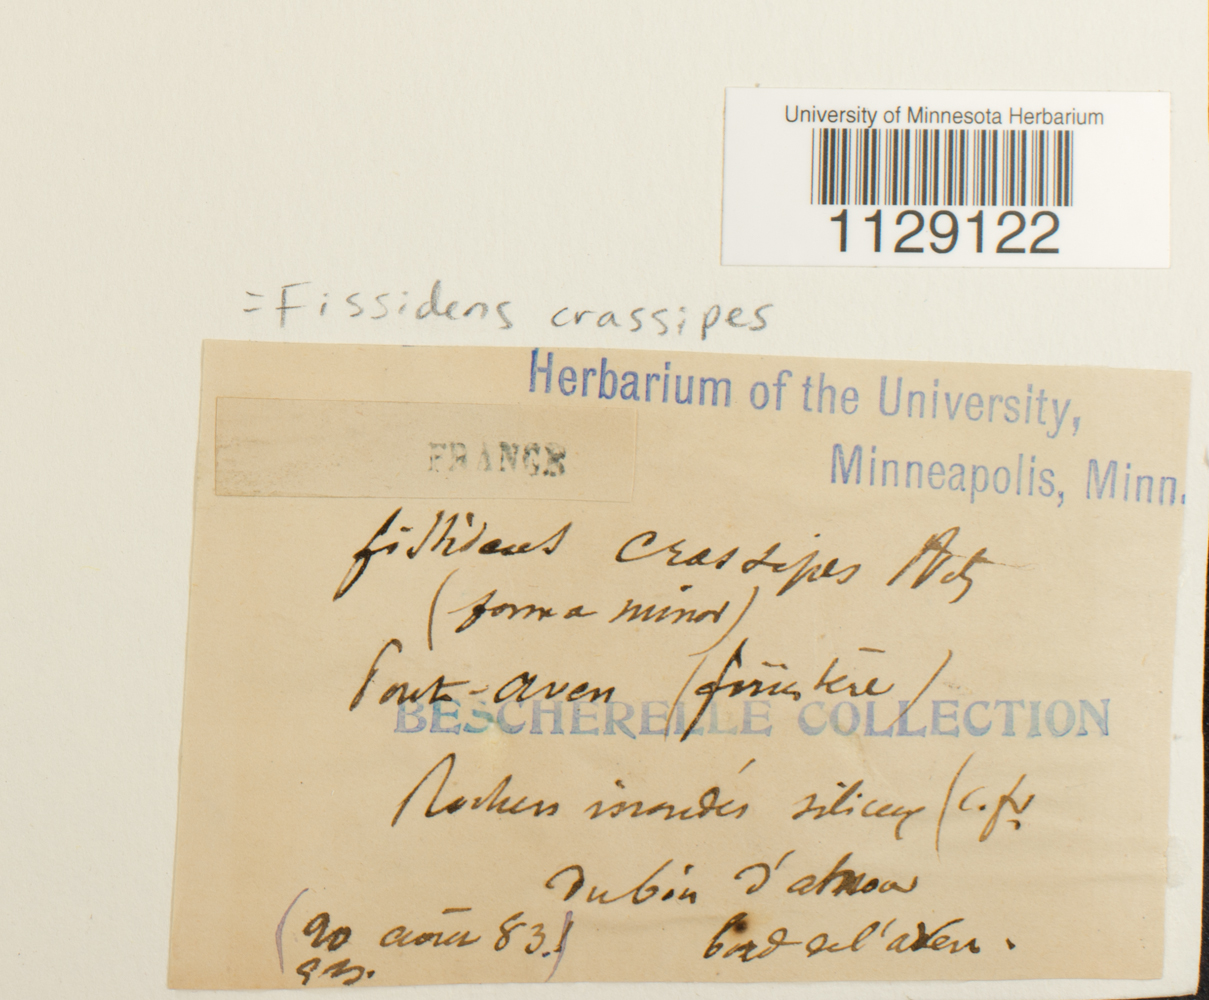 University of Minnesota Herbarium
1129122
= Fissidens crassipes
Herbarium of the University,
Minneapolis, Minn.
FRANCE
fissidens crassipes
(forma minor)
Pont-aven (finistère)
BESCHERELLE COLLECTION
Rochers inondés siliceux (c. fr
du bois d'amour
(20 août 83.)
bord de l'aven.